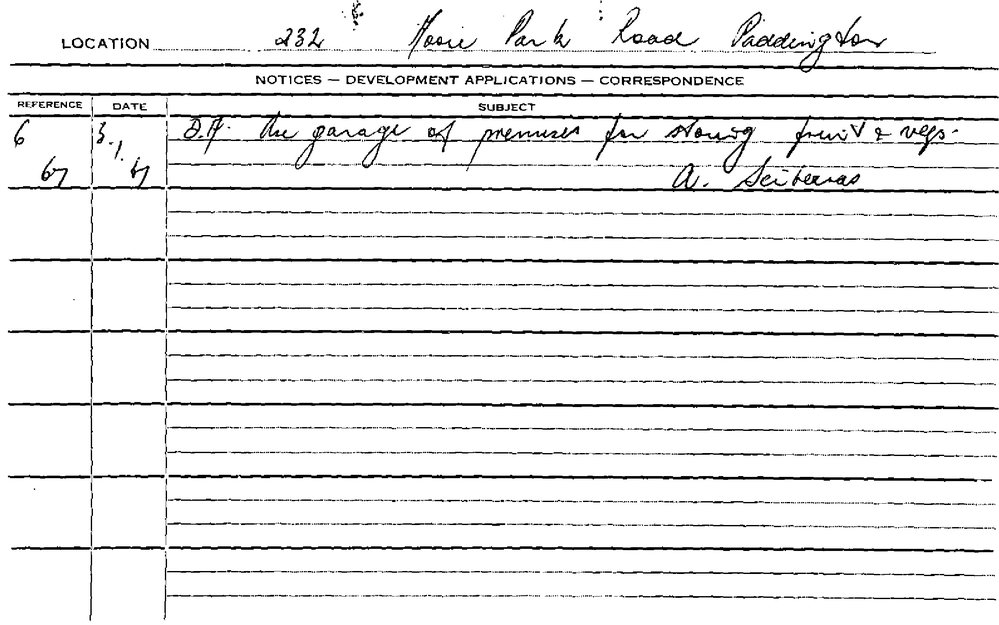 LOCATION 232 Moore Park Road Paddington
NOTICES — DEVELOPMENT APPLICATIONS — CORRESPONDENCE
REFERENCE DATE SUBJECT
6 3.1. D.A. Use garage of premises for storing fruit & vegs.
67 67 A. Sciberras